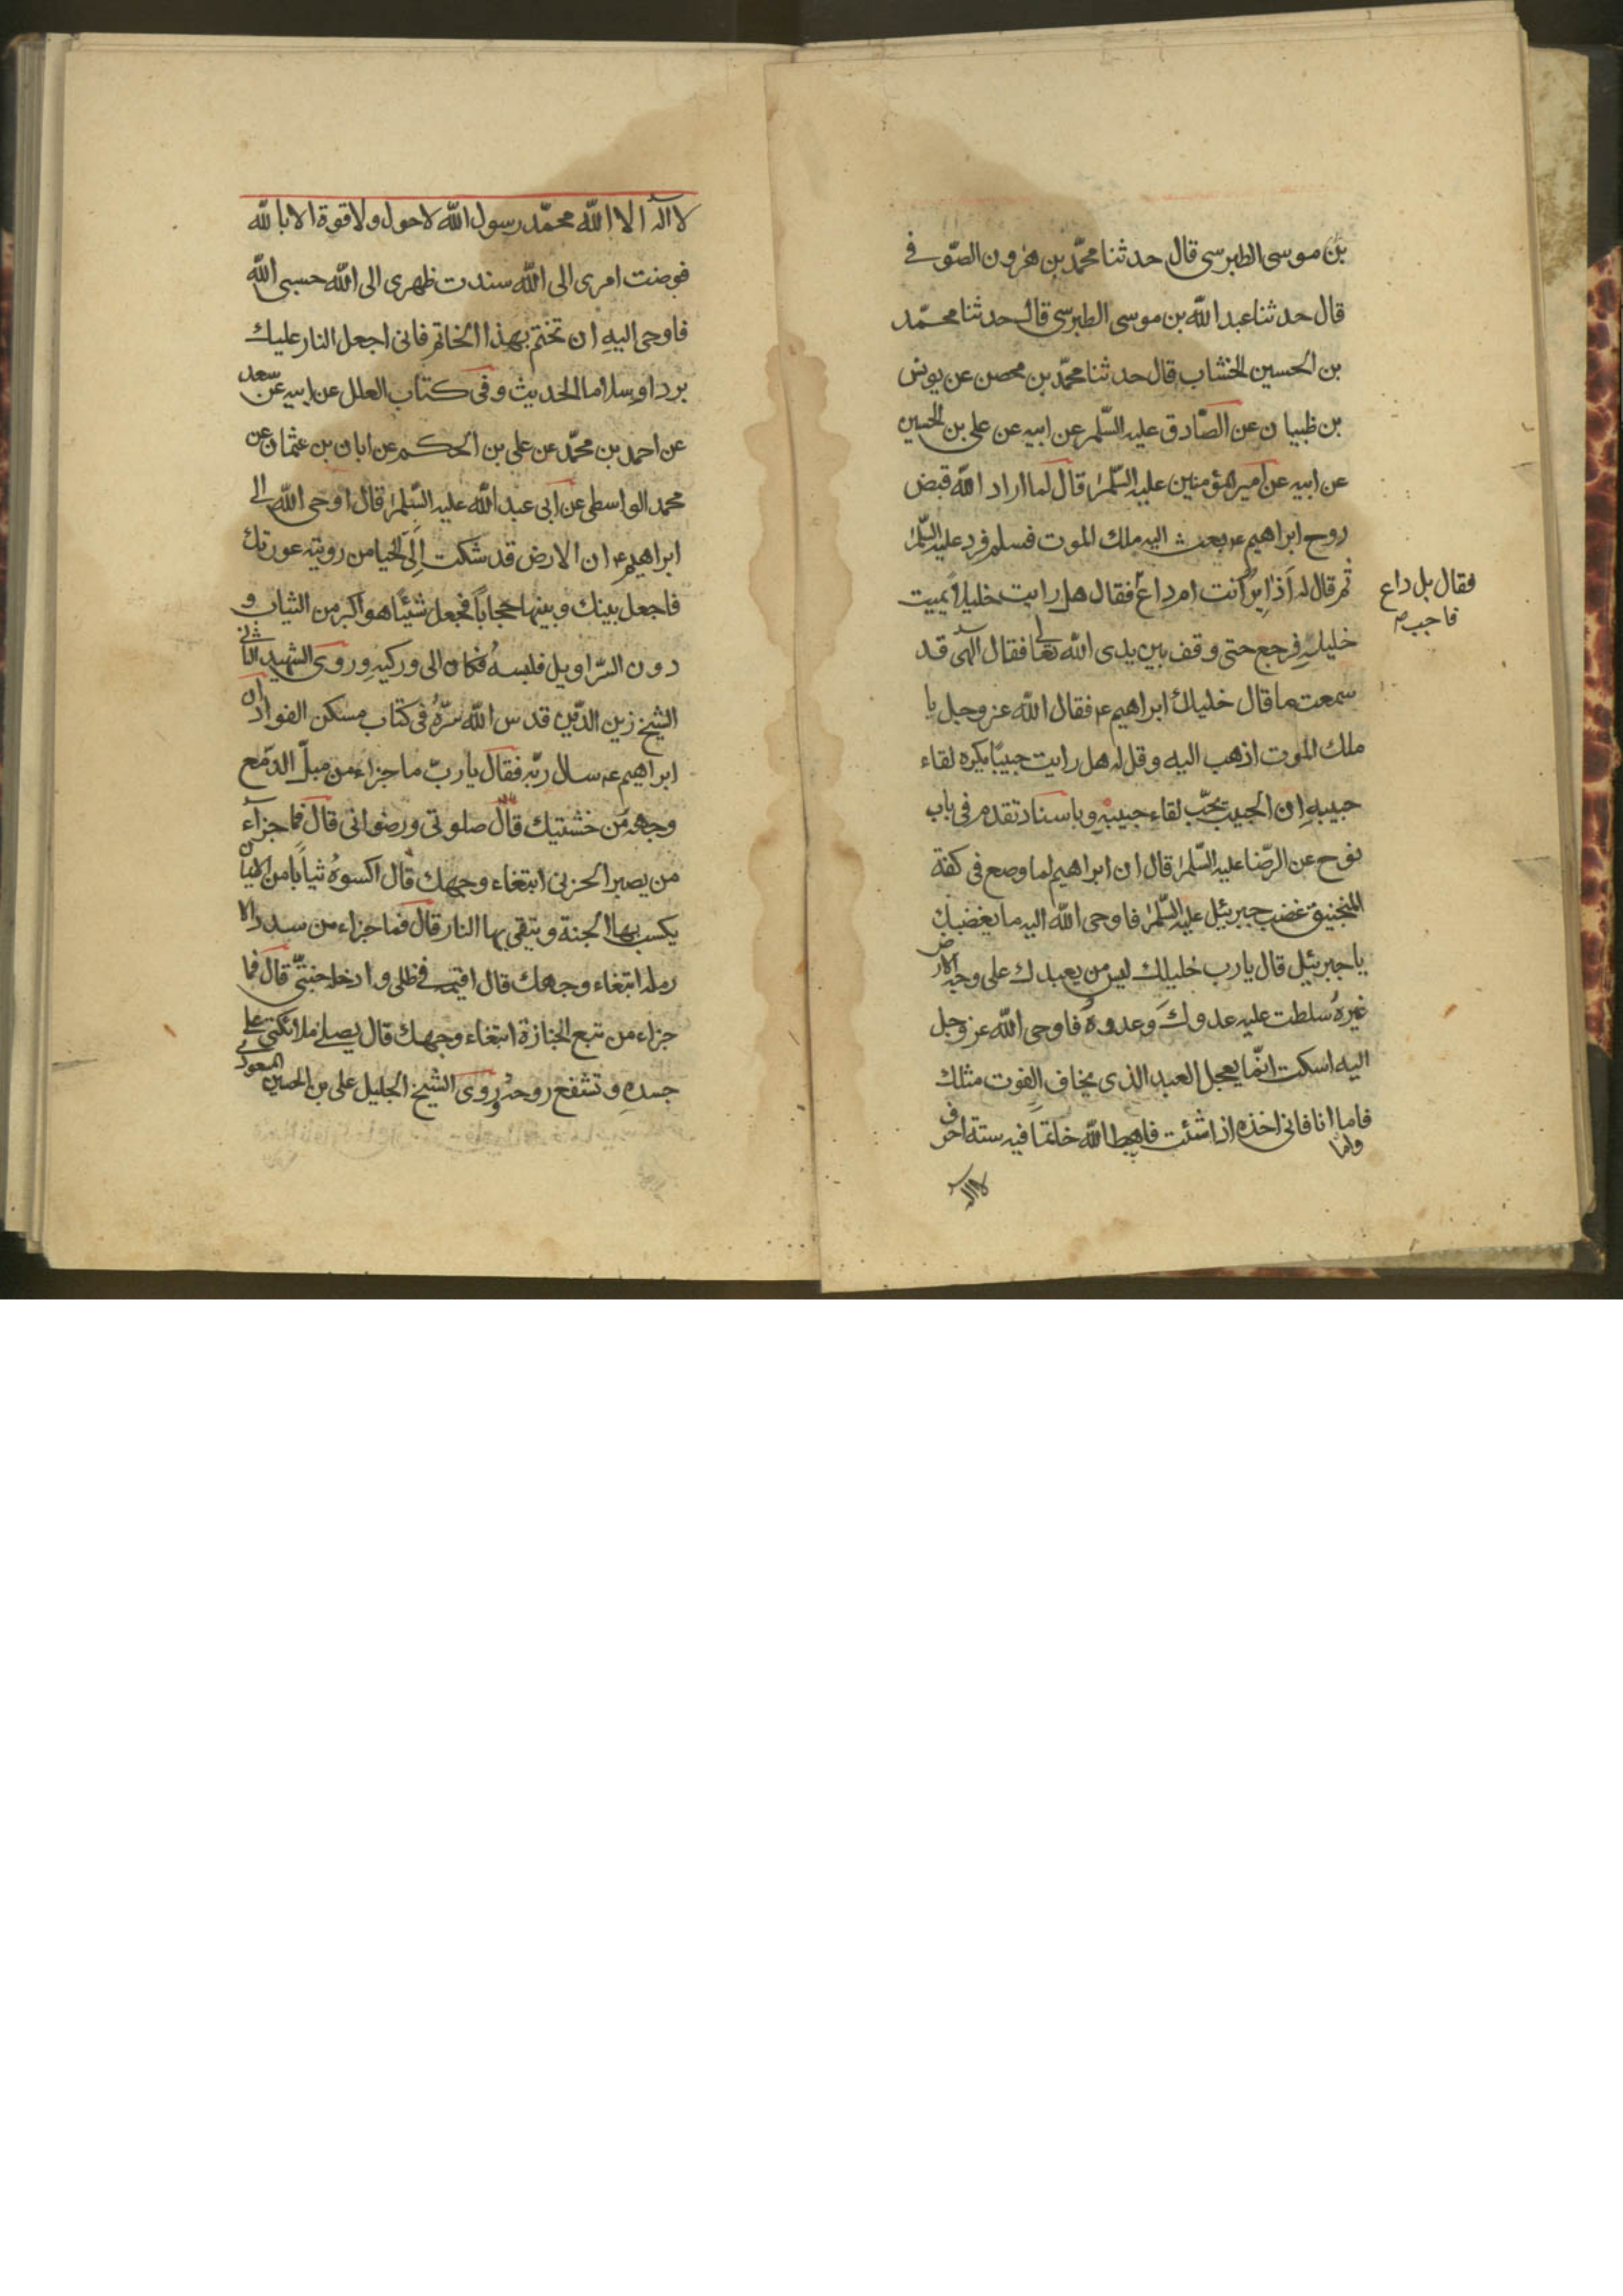 بن موسى الطبرسى قال حدثنا محمّد بن هرون الصّوفى
قال حدثنا عبد الله بن موسى الطبرسى قال حدثنا محمّد
بن الحسين الخشاب قال حدثنا محمّد بن محصن عن يونس
بن ظبيان عن الصّادق عليه السّلم عن ابيه عن على بن الحسين
عن ابيه عن امير المؤمنين عليه السّلم قال لما اراد الله قبض
روح ابراهيم ع بعث اليه ملك الموت فسلم فرد عليه السّلم
ثم قال له أزاير انت ام داع فقال هل رايت خليلا يميت
فقال بل داع
فاجب صح
خليله فرجع حتى وقف بين يدى الله تعالى فقال الٓهى قد
سمعت ما قال خليلك ابراهيم ع فقال الله عز وجل يا
ملك الموت اذهب اليه وقل له هل رايت حبيبا يكره لقاء
حبيبه ان الحبيب يحبّ لقاء حبيبه وباسناد تقدم فى باب
نوح عن الرّضا عليه السّلم قال ان ابراهيم لما وضع فى كفة
المنجنيق غضب جبرئيل عليه السّلم فاوحى الله اليه ما يغضبك
يا جبرئيل قال يا رب خليلك ليس من يعبدك على وجه الارض
غيره سلطت عليه عدوك وعدوه فاوحى الله عز وجل
اليه اسكت انمّا يعجل العبد الذى يخاف الفوت مثلك
فاما انا فانى اخذه اذا شئت فاهبط الله خاتما فيه ستة احرف
واما
لا اله
لا اله الا الله محمّد رسول الله لا حول ولا قوة الا بالله
فوضت امرى الى الله سندت ظهرى الى الله حسبى الله
فاوحى اليه ان تختم بهذا الخاتم فانى اجعل النار عليك
بردا وسلاما الحديث وفى كتاب العلل عن ابيه عن سعد
عن احمد بن محمّد عن على بن الحكم عن ابان بن عثمان عن
محمد الواسطى عن ابى عبد الله عليه السّلم قال اوحى الله الى
ابراهيم ع ان الارض قد شكت الىّ الحيا من روية عورتك
فاجعل بينك وبينها حجاباً فجعل شيئا هو اكبر من الثياب و
دون السّراويل فلبسه فكان الى وركيه وروى الشهيد الثانى
الشيخ زين الدّين قدس الله سرّه فى كتاب مسكن الفواد ان
ابراهيم ع سال ربّه فقال يا ربّ ما جزاء من مبلّ الدّمع
وجهه من خشيتك قال صلوتى ورضوانى قال فما جزآء
من يصبر الحزين ابتغاء وجهك قال اكسوه ثياباً من الايمان
يكسب بها الجنة ويتقى بها النار قال فما جزاء من سدد الا
رمله ابتغاء وجهك قال اقيمه فى ظلى وادخله جنتىّ قال فما
جزاء من تبع الجنازة ابتغاء وجهك قال يصلى ملائكتى على
جسده وتشفع روحه وروى الشيخ الجليل على بن الحسين المسعودى